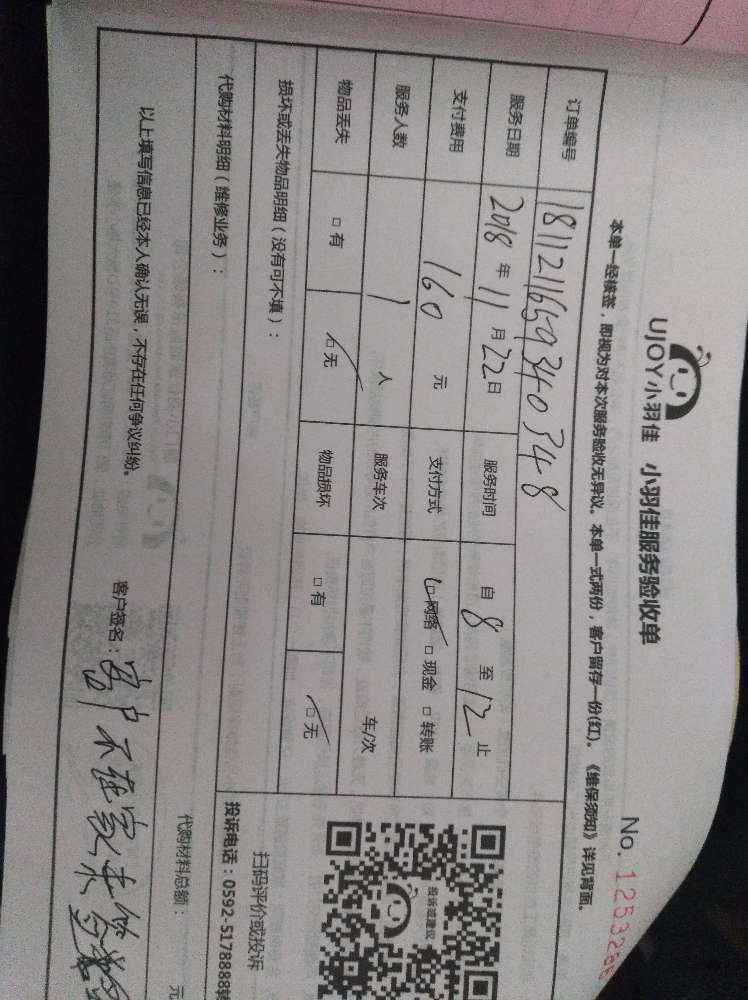 UJOY小羽佳 小羽佳服务验收单
No. 125328
本单一经接签，即视为对本次服务验收无异议。本单一式两份，客户留存一份(红)。《维保须知》详见背面。
订单编号 1811211659340348
服务日期 2018 年 11 月 22 日 服务时间 自 8 至 12 止
支付费用 160 元 支付方式 □网络 □现金 □转账
服务人数 1 人 服务车次 车/次
物品丢失 □有 □无 物品损坏 □有 □无
损坏或丢失物品明细（没有可不填）：
投诉或建议
扫码评价或投诉
投诉电话：0592-5178888转
代购材料明细（维修业务）：
代购材料总额： 元
以上填写信息已经本人确认无误，不存在任何争议纠纷。
客户签名：客户不在家